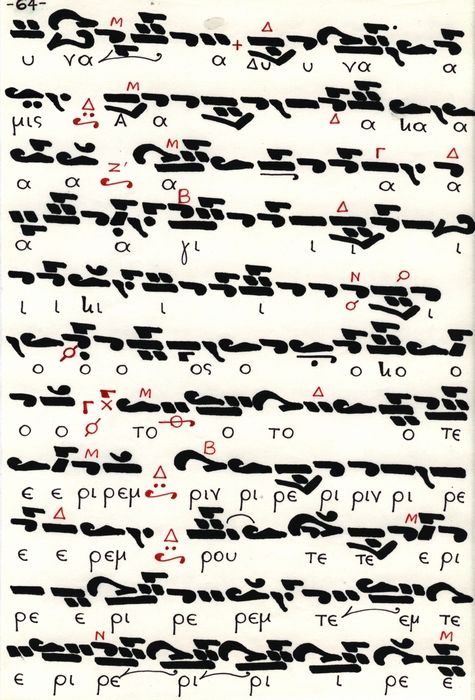 -64-
υ να α Δυ υ να α
μις Α α α και α
α α α α α
α α γι ι ι ι
ι ι κι ι ι ι
ο ο ο ος ο ο κο ο
ο ο το ο το ο τε
ε ε ρι ρεμ ριν ρι ρε ρι ριν ρι ρε
ε ε ρεμ ρου τε τε ε ρι
ρε ε ρι ρε ρεμ τε εμ τε
ε ρι ρε ρι ρι ι ρε ε